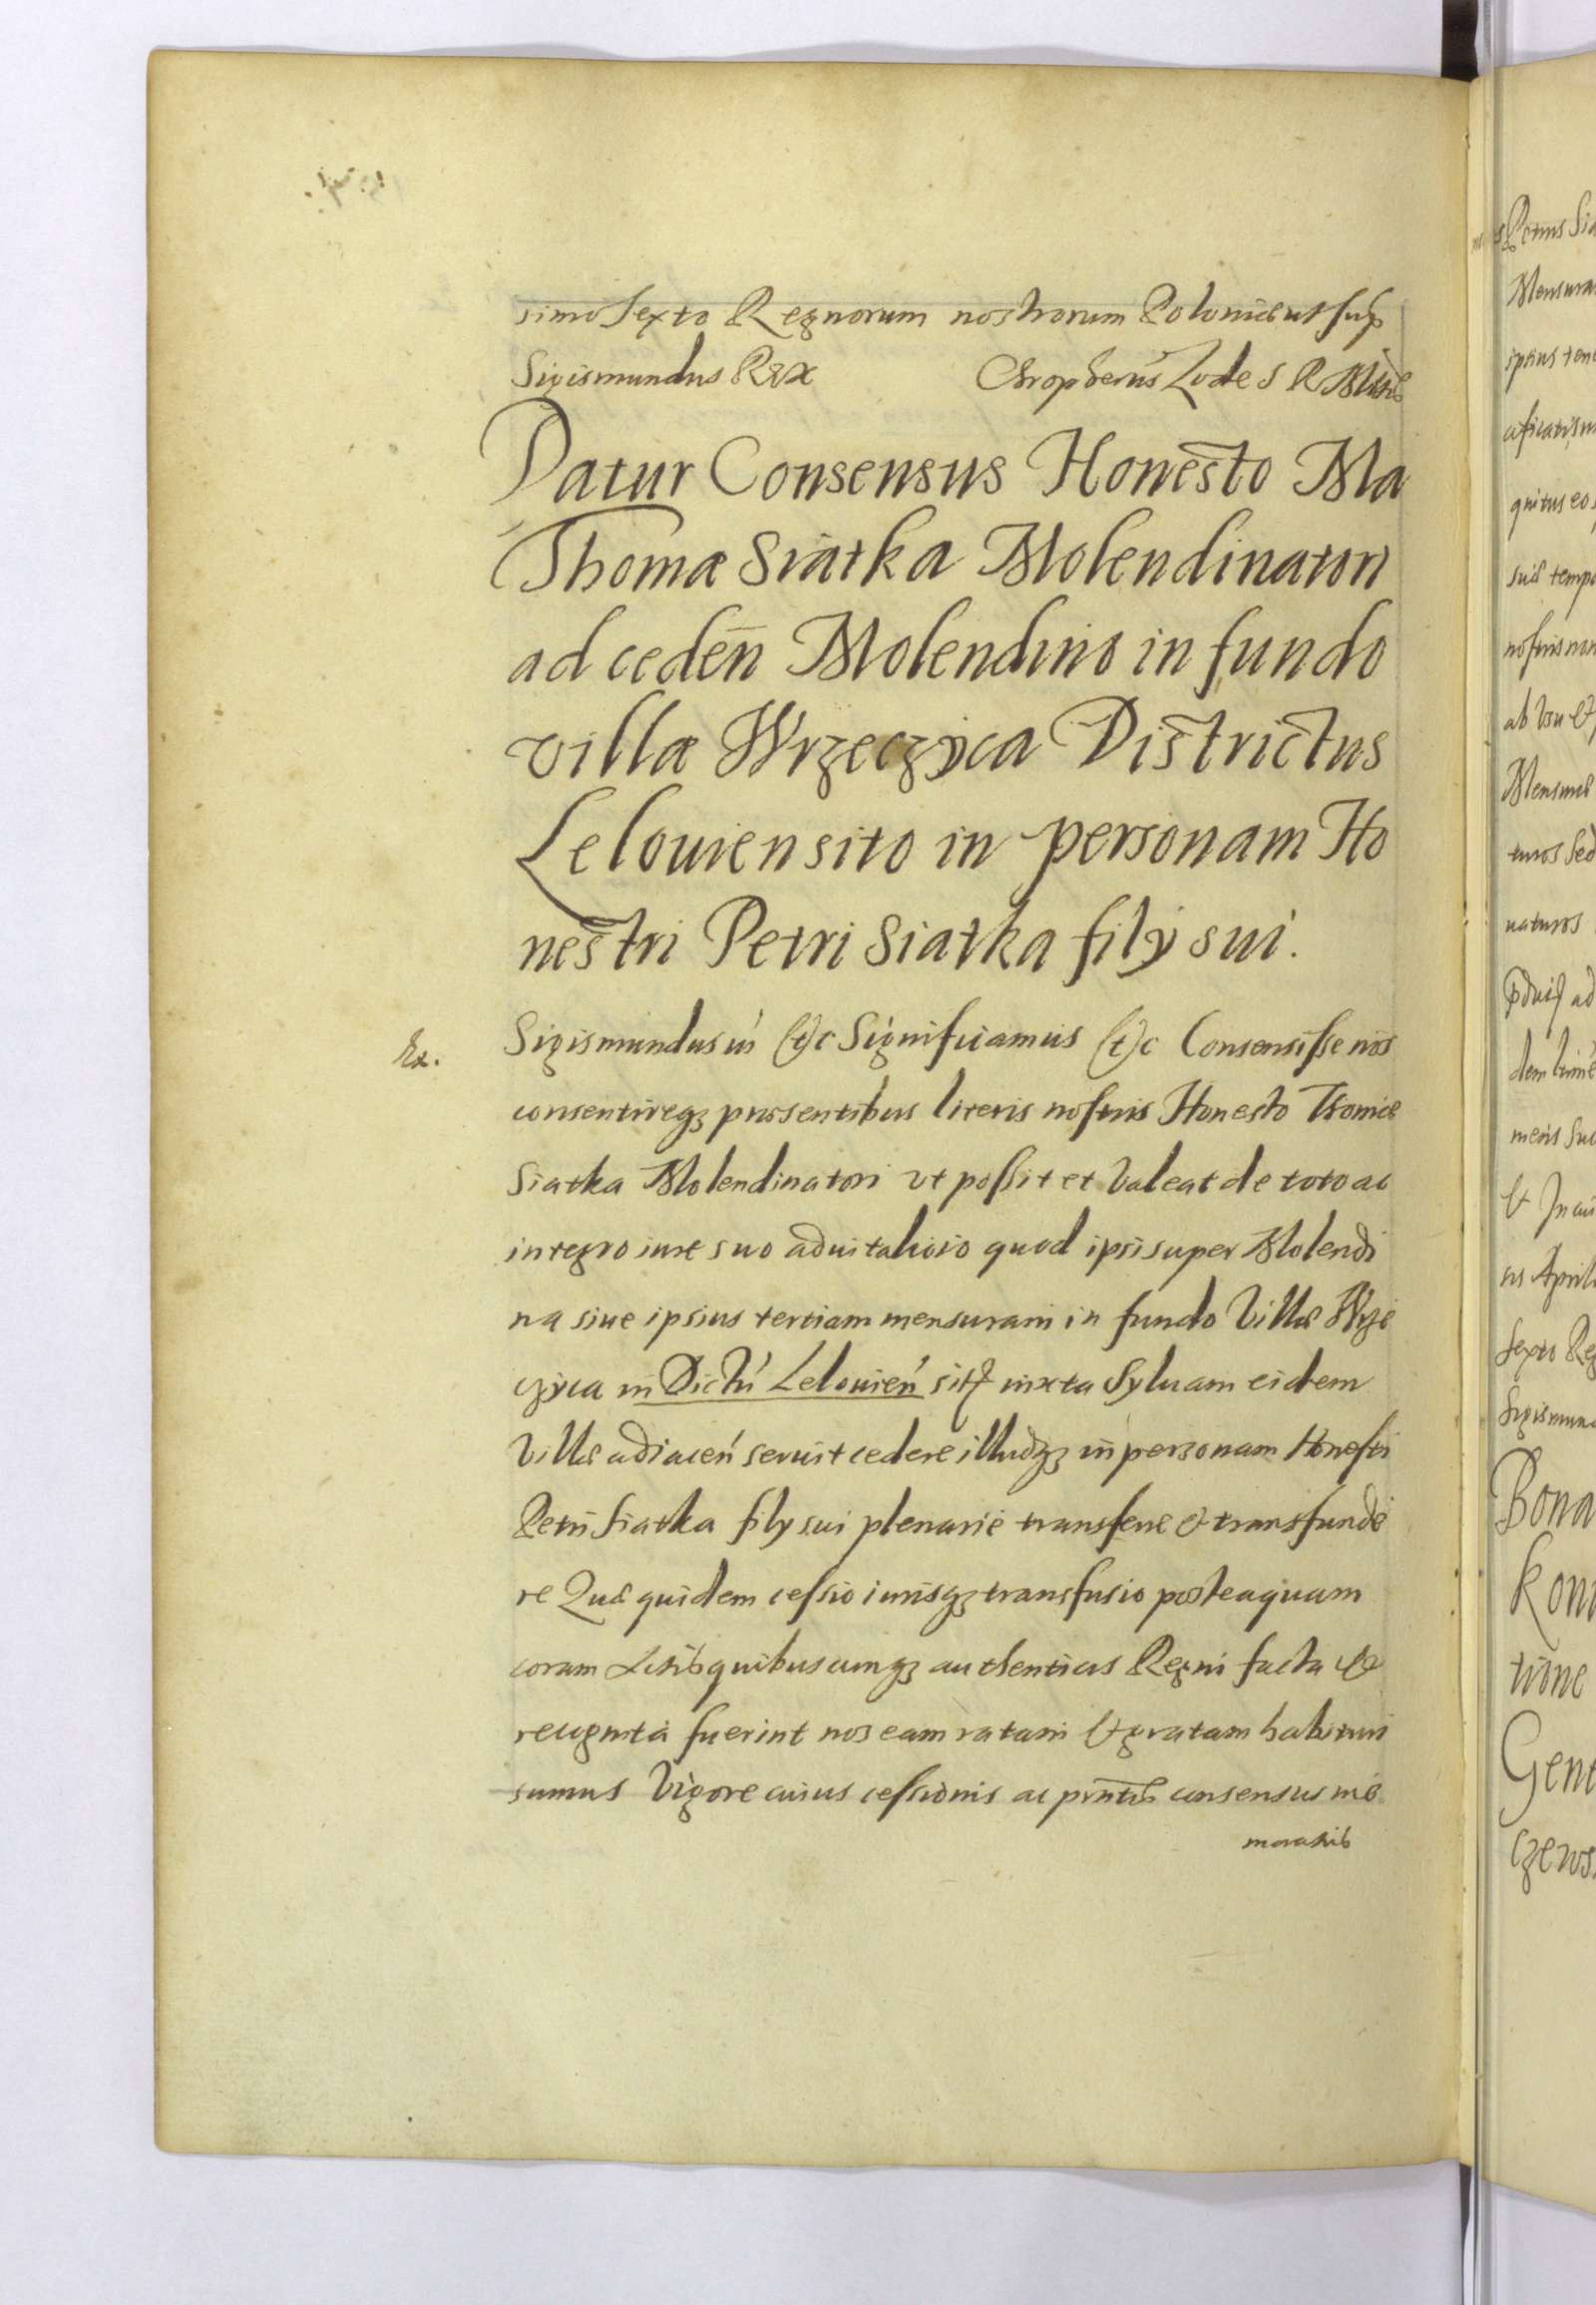 simo Sexto Regnorum nostrorum Poloniæ ut sup
Sigismundus Rex
Datur Consensus Honesto Ma
Thomæ Siatka Molendinatori
ad ceden Molendino in fundo
villæ Wrzeczyca Districtus
Lelouien sito in personam Ho
nestri Petri Siatka filij sui.
Ex. Sigismundus iii (t)c Significamus (t)c Consensisse nos
consentireqz præsentibus literis nostris Honesto Thomæ
Siatka Molendinatori ut possit et Valeat de toto ac
integro iure suo aduitalitio quod ipsi super Molendi
na siue ipsius tertiam mensuram in fundo Villæ Wrze
czyca in Dictu Lelouien iuxta Syluam eidem
Villæ adiacen seruit cedere illudqz in personam Honesti
Petri Siatka filij sui plenarie transferre & transfunde
re Quæ quidem cessio iurisqz transfusio posteaquam
coram Actis quibuscunqz authenticis Regni facta &
recognita fuerint nos eam ratam & gratam habituri
sumus Vigore cuius cessionis ac pntis consensus